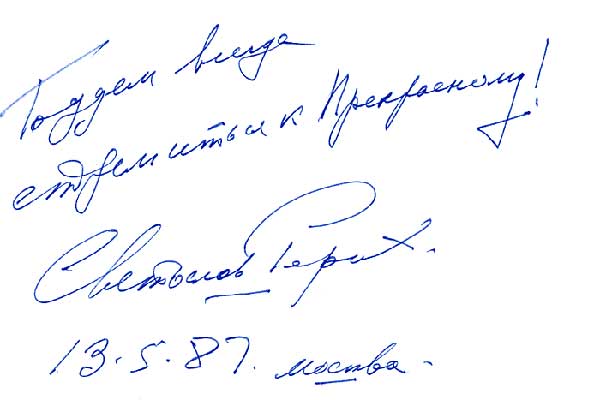 Будем всегда
стремиться к Прекрасному!
Святослав Рерих.
13.5.87. Москва.